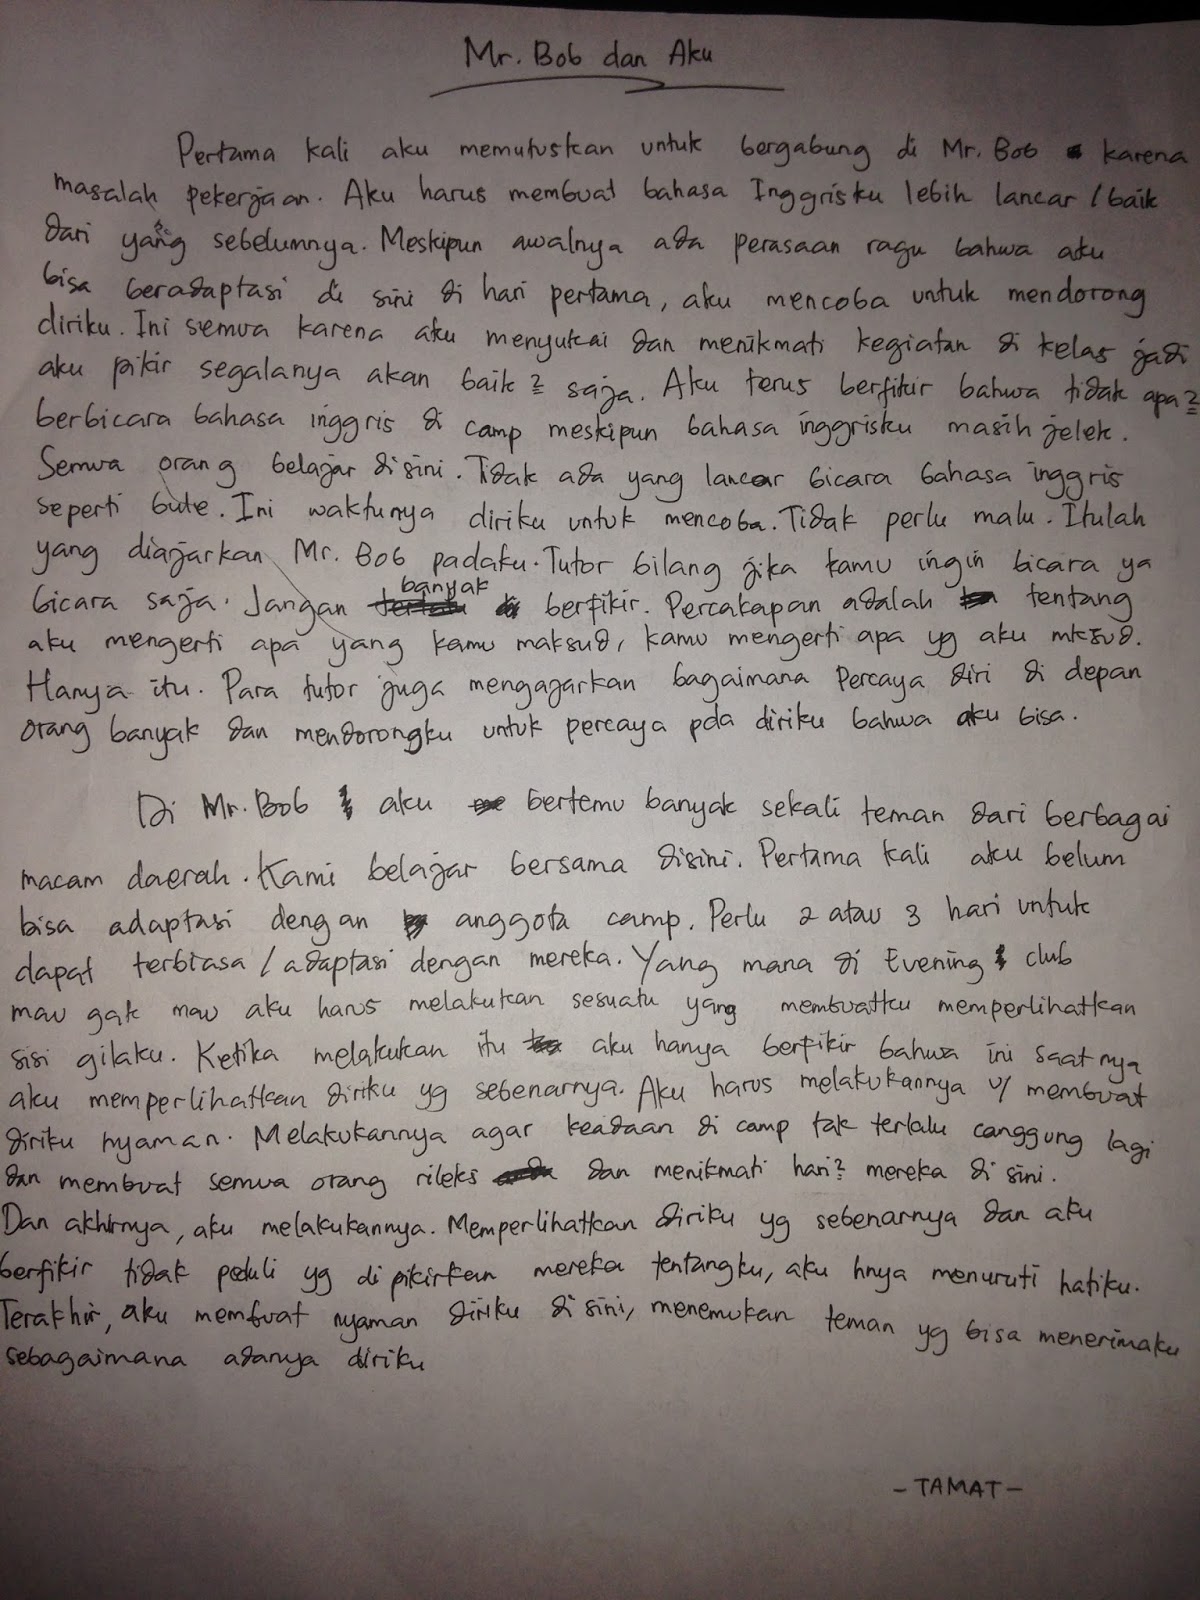 Mr. Bob dan Aku
Pertama kali aku memutuskan untuk bergabung di Mr. Bob karena
masalah pekerjaan. Aku harus membuat bahasa Inggrisku lebih lancar / baik
dari yang sebelumnya. Meskipun awalnya ada perasaan ragu bahwa aku
bisa beradaptasi di sini di hari pertama, aku mencoba untuk mendorong
diriku. Ini semua karena aku menyukai dan menikmati kegiatan di kelas jadi
aku pikir segalanya akan baik2 saja. Aku terus berfikir bahwa tidak apa2
berbicara bahasa inggris di camp meskipun bahasa inggrisku masih jelek.
Semua orang belajar disini. Tidak ada yang lancar bicara bahasa inggris
seperti bule. Ini waktunya diriku untuk mencoba. Tidak perlu malu. Itulah
yang diajarkan Mr. Bob padaku. Tutor bilang jika kamu ingin bicara ya
bicara saja. Jangan banyak berfikir. Percakapan adalah tentang
aku mengerti apa yang kamu maksud, kamu mengerti apa yg aku mksud.
Hanya itu. Para tutor juga mengajarkan bagaimana percaya diri di depan
orang banyak dan mendorongku untuk percaya pda diriku bahwa aku bisa.
Di Mr. Bob aku bertemu banyak sekali teman dari berbagai
macam daerah. Kami belajar bersama disini. Pertama kali aku belum
bisa adaptasi dengan anggota camp. Perlu 2 atau 3 hari untuk
dapat terbiasa / adaptasi dengan mereka. Yang mana di Evening club
mau gak mau aku harus melakukan sesuatu yang membuatku memperlihatkan
sisi gilaku. Ketika melakukan itu aku hanya berfikir bahwa ini saatnya
aku memperlihatkan diriku yg sebenarnya. Aku harus melakukannya u/ membuat
diriku nyaman. Melakukannya agar keadaan di camp tak terlalu canggung lagi
dan membuat semua orang rileks dan menikmati hari2 mereka di sini.
Dan akhirnya, aku melakukannya. Memperlihatkan diriku yg sebenarnya dan aku
berfikir tidak peduli yg di pikirkan mereka tentangku, aku hnya menuruti hatiku.
Terakhir, aku membuat nyaman diriku di sini, menemukan teman yg bisa menerimaku
sebagaimana adanya diriku
- TAMAT -